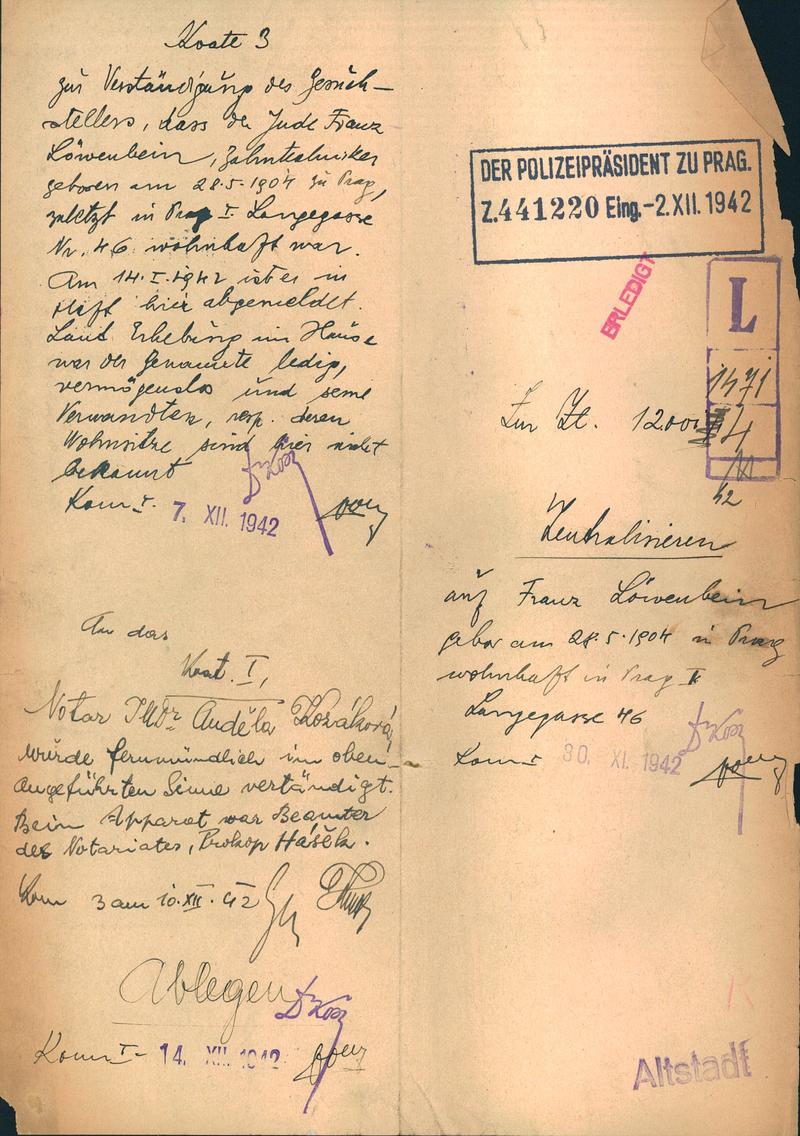 Koate 3
zur Verständigung des Gesuch-
stellers, dass der Jude Franz
Löwenbein, Zahntechniker
geboren am 28.5.1904 zu Prag,
zuletzt in Prag I. Langegasse
Nr. 46 wohnhaft war.
Am 14.I.1942 ist er in
Haft hier abgemeldet.
Laut Erhebung im Hause
war der Genannte ledig,
vermögenslos und seine
Verwandten, resp. deren
Wohnsitze sind hier nicht
bekannt
Kom I. 7. XII. 1942
An das
Koat. I,
Notar JUDr Anděla Kozáková
wurde fernmündlich im oben-
angeführten Sinne verständigt.
Beim Apparat war Beamter
des Notariates, Prokop Hášek.
Kom 3 am 10.XII.42
Ablegen
Kom I- 14. XII. 1942
DER POLIZEIPRÄSIDENT ZU PRAG.
Z. 441220 Eing. -2. XII. 1942
ERLEDIGT
L
1471
4
42
Zur Zl.
Zentralisieren
auf Franz Löwenbein
gebor am 28.5.1904 in Prag
wohnhaft in Prag I
Langegasse 46
Kom I 30. XI. 1942
Altstadt